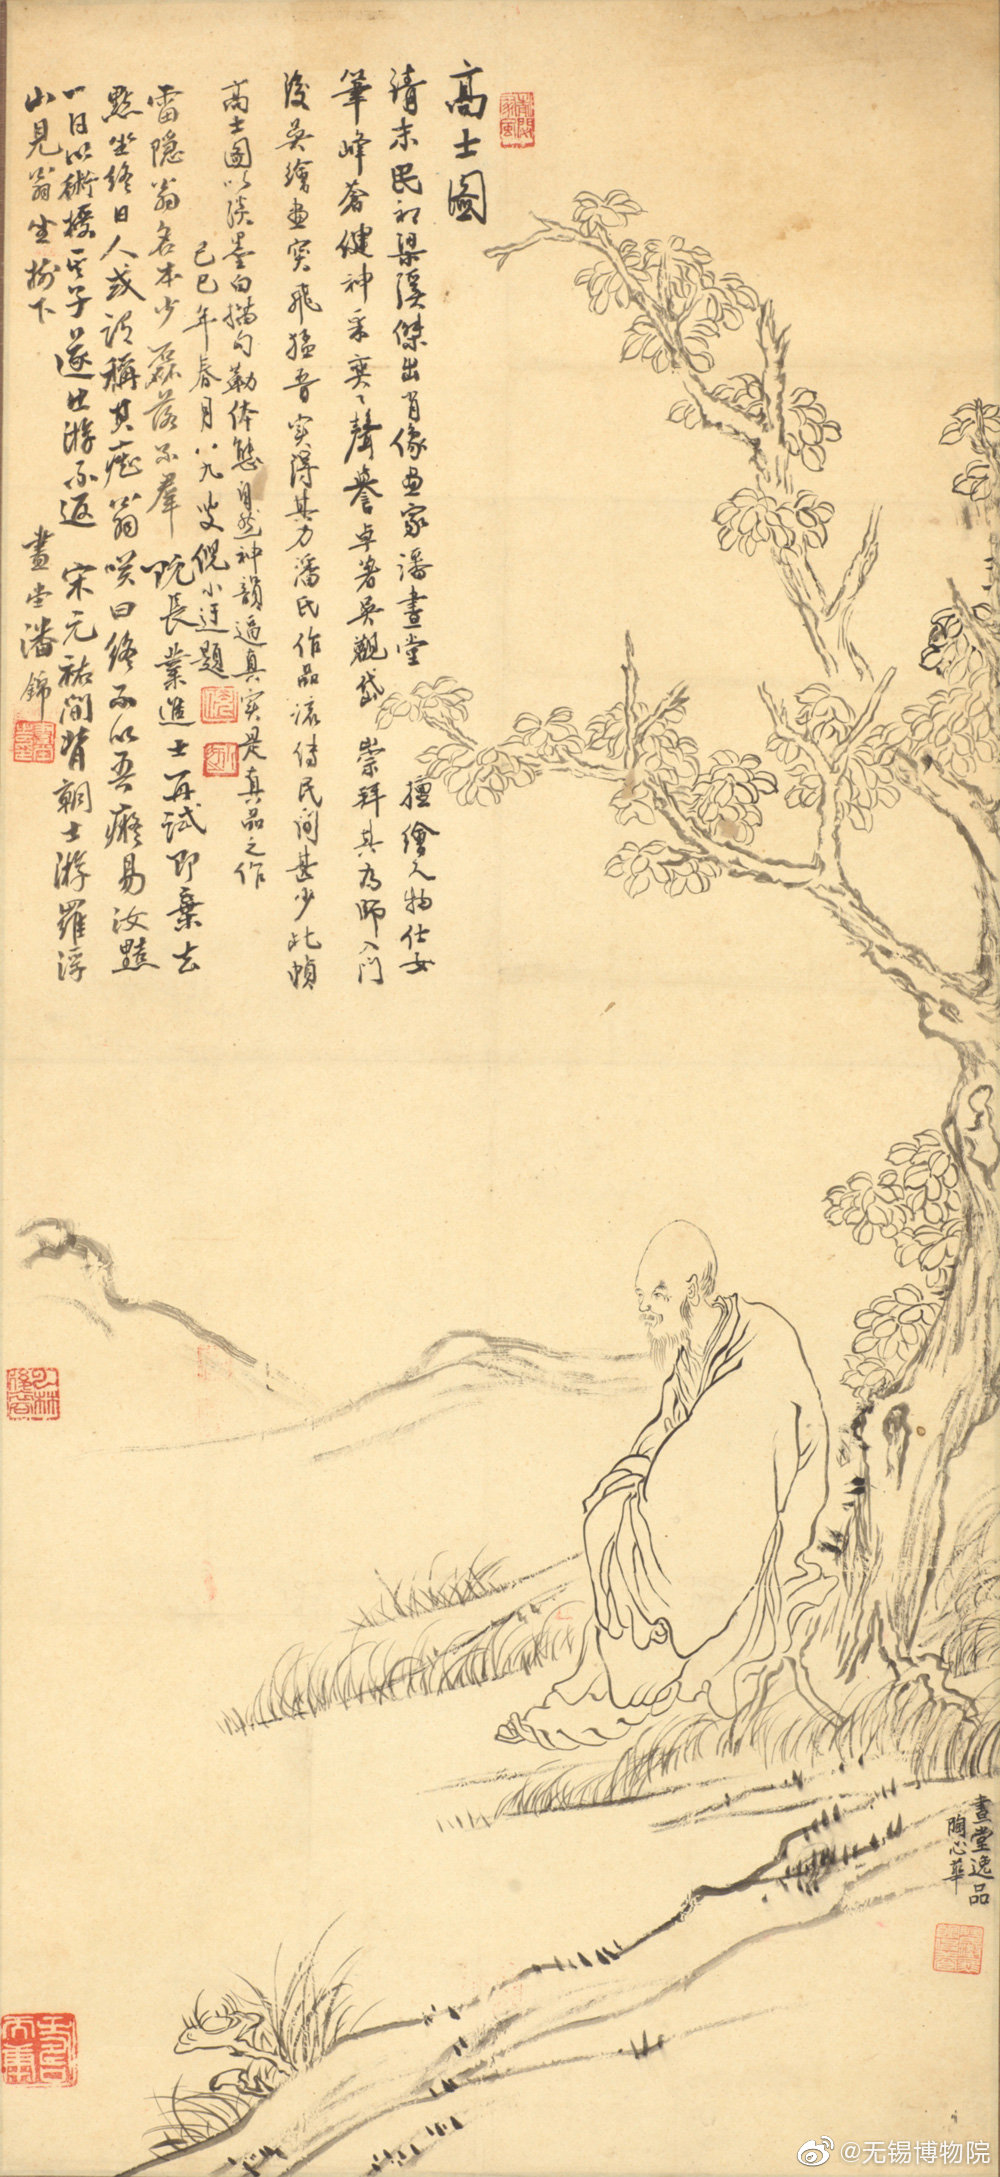 高士圖
清末民初梁溪傑出肖像画家潘晝堂 擅繪人物仕女
筆峰蒼健神采奕々聲譽卓著吳觀岱 崇拜其為師入門
後吳繪畫突飛猛晋实得其力潘氏作品流傳民间甚少此幀
高士圖以淡墨白描勾勒体態自然神韻逼真实是真品之作
己巳年春月八九叟倪小迂題
雷隱翁名本少磊落不羣 既長業進士再試即棄去
默坐終日人或謂稱其癡翁咲曰終不以吾癡易汝黠
一日以術授其子遂出游不返 宋元祐間有朝士游羅浮
山見翁坐樹下
晝堂潘錦
晝堂逸品
陶心華
@无锡博物院